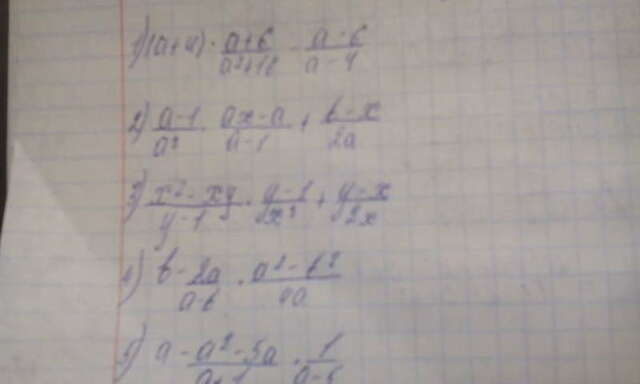 1) (a+4) · \frac{a+b}{a²+16} - \frac{a-b}{a-4}
2) \frac{a-1}{a²} · \frac{ax-a}{a-1} + \frac{b-x}{2a}
3) \frac{x²-xy}{y-1} · \frac{y-1}{x²} + \frac{y-x}{2x}
4) b - \frac{2a}{a-b} · \frac{a²-b²}{4a}
5) a - \frac{a²-5a}{a+1} · \frac{1}{a-5}